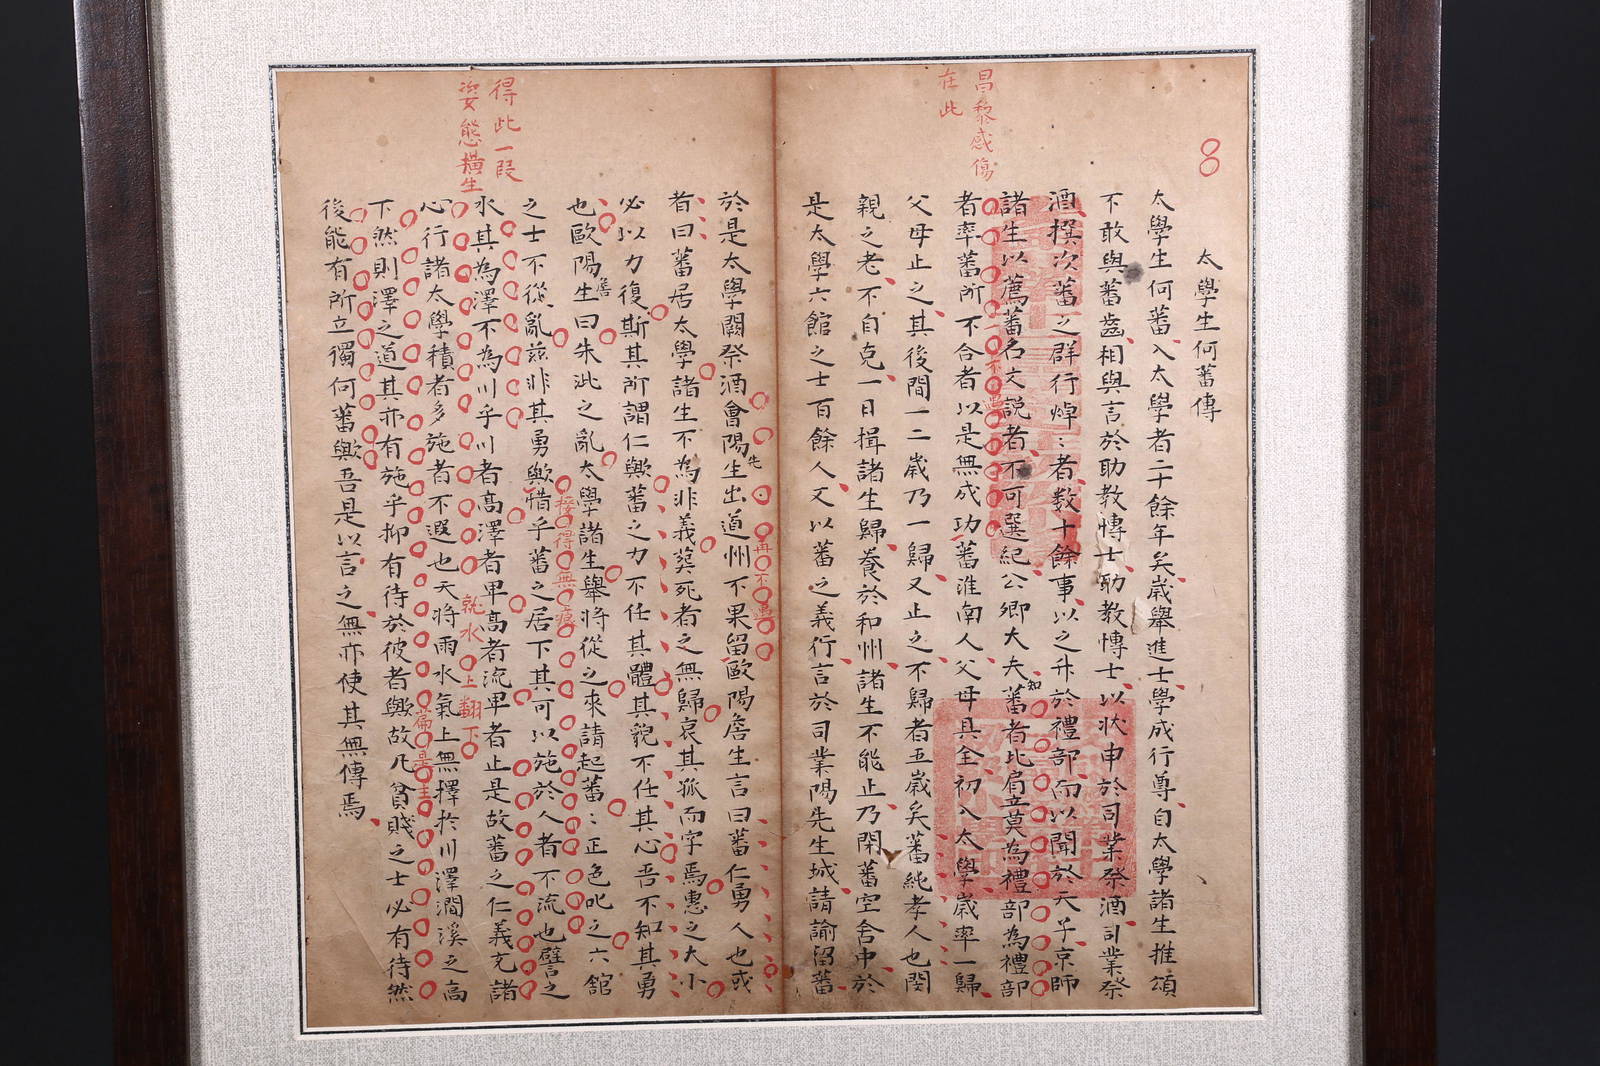 昌黎感傷
在此
太學生何蕃傳
太學生何蕃入太學者二十餘年矣歲舉進士學成行尊自太學諸生推頌
不敢與蕃齒相與言於助教博士助教博士以狀申於司業祭酒司業祭
酒撰次蕃之群行焯〻者数十餘事以之升於禮部而以聞於天子京師
諸生以薦蕃名文說者不可選紀公卿大夫知蕃者比肩立莫為禮部為禮部
一不遇
者率蕃所不合者以是無成功蕃淮南人父母具全初入太學歲率一歸
父母止之其後間一二歲乃一歸又止之不歸者五歲矣蕃純孝人也閔
親之老不自克一日揖諸生歸養於和州諸生不能止乃閉蕃空舍中於
是太學六館之士百餘人又以蕃之義行言於司業陽先生城請諭留蕃
再不遇
於是太學闕祭酒會陽先生出道州不果留歐陽詹生言曰蕃仁勇人也或
者曰蕃居太學諸生不為非義葬死者之無歸哀其孤而字焉惠之大小
必以力復斯其所謂仁歟蕃之力不任其體其貌不任其心吾不知其勇
也歐陽詹生曰朱泚之亂太學諸生舉將從之來請起蕃〻正色叱之六館
接得無痕
得此一段
姿態橫生
之士不從亂茲非其勇歟惜乎蕃之居下其可以施於人者不流也譬之
水其為澤不為川乎川者高澤者卑高者流卑者止是故蕃之仁義充諸
就水上翻下
心行諸太學積者多施者不遐也天將雨水氣上無擇於川澤澗溪之高
篇是主
下然則澤之道其亦有施乎抑有待於彼者歟故凡貧賤之士必有待然
後能有所立獨何蕃歟吾是以言之無亦使其無傳焉